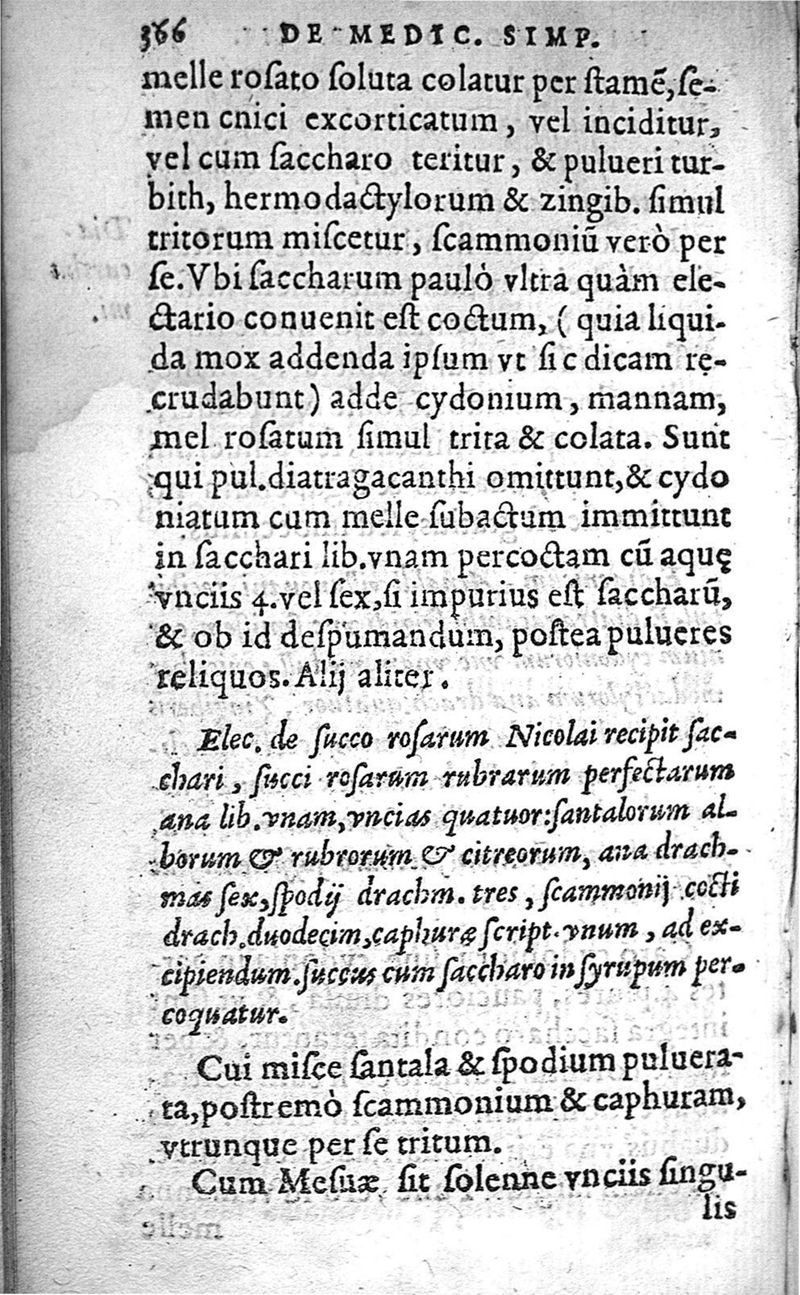 366 DE MEDIC. SIMP.
melle roſato ſoluta colatur per ſtamẽ, ſe-
men cnici excorticatum, vel inciditur,
vel cum ſaccharo teritur, & pulueri tur-
bith, hermodactylorum & zingib. ſimul
tritorum miſcetur, ſcammoniũ verò per
ſe. Vbi ſaccharum paulò vltra quàm ele-
ctario conuenit eſt coctum, ( quia liqui-
da mox addenda ipſum vt ſic dicam re-
crudabunt) adde cydonium, mannam,
mel roſatum ſimul trita & colata. Sunt
qui pul. diatragacanthi omittunt, & cydo
niatum cum melle ſubactum immittunt
in ſacchari lib. vnam percoctam cũ aquę
vnciis 4. vel ſex, ſi impurius eſt ſaccharũ,
& ob id deſpumandum, poſtea pulueres
reliquos. Alij aliter.
Elec. de ſucco roſarum Nicolai recipit ſac-
chari, ſucci roſarum rubrarum perfectarum
ana lib. vnam, vncias quatuor: ſantalorum al-
borum & rubrorum & citreorum, ana drach-
mas ſex, ſpodij drachm. tres, ſcammonij cocti
drach. duodecim, caphuræ ſcript. vnum, ad ex-
cipiendum. ſuccus cum ſaccharo in ſyrupum per-
coquatur.
Cui miſce ſantala & ſpodium puluera-
ta, poſtremò ſcammonium & caphuram,
vtrunque per ſe tritum.
Cum Meſuæ ſit ſolenne vnciis ſingu-
lis